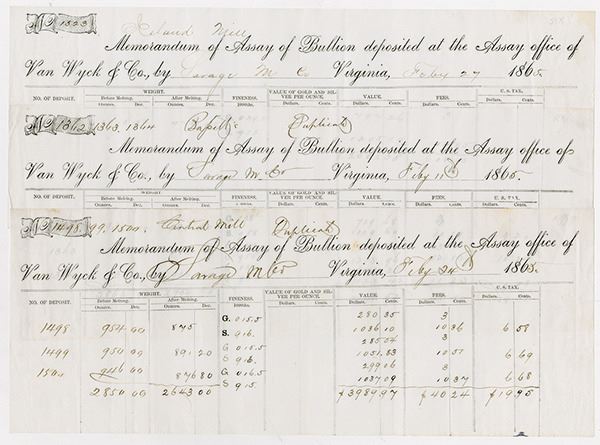 No 1523
Island Mill
Memorandum of Assay of Bullion deposited at the Assay office of
Van Wyck & Co., by Savage M Co Virginia, Feby 27 1865.
NO. OF DEPOSIT. WEIGHT. Before Melting. Ounces. Dec. After Melting. Ounces. Dec. FINENESS. 1000ths. VALUE OF GOLD AND SILVER PER OUNCE. Dollars. Cents. VALUE. Dollars. Cents. FEES. Dollars. Cents. U. S. TAX. Dollars. Cents.
No 1362, 1363, 1364 Duplicate
Memorandum of Assay of Bullion deposited at the Assay office of
Van Wyck & Co., by Savage M. Co Virginia, Feby 11th 1865.
NO. OF DEPOSIT. WEIGHT. Before Melting. Ounces. Dec. After Melting. Ounces. Dec. FINENESS. 1000ths. VALUE OF GOLD AND SILVER PER OUNCE. Dollars. Cents. VALUE. Dollars. Cents. FEES. Dollars. Cents. U. S. TAX. Dollars. Cents.
No 1498, 99, 1500. Central Mill Duplicate
Memorandum of Assay of Bullion deposited at the Assay office of
Van Wyck & Co., by Savage M Co Virginia, Feby 24th 1865.
NO. OF DEPOSIT. WEIGHT. Before Melting. Ounces. Dec. After Melting. Ounces. Dec. FINENESS. 1000ths. VALUE OF GOLD AND SILVER PER OUNCE. Dollars. Cents. VALUE. Dollars. Cents. FEES. Dollars. Cents. U. S. TAX. Dollars. Cents.
G. 015.5 280 35 3
1498 954 00 875 S. 916. 1036 10 10 36 6 58
G 015.5 285 04 3
1499 950 00 891 20 S 916. 1051.83 10 51 6 69
G 016.5 299 06 3
1500 946 00 876 80 S 915. 1037 09 10 37 6 68
2850 00 2643 00 $3989 97 $40 24 $19.95